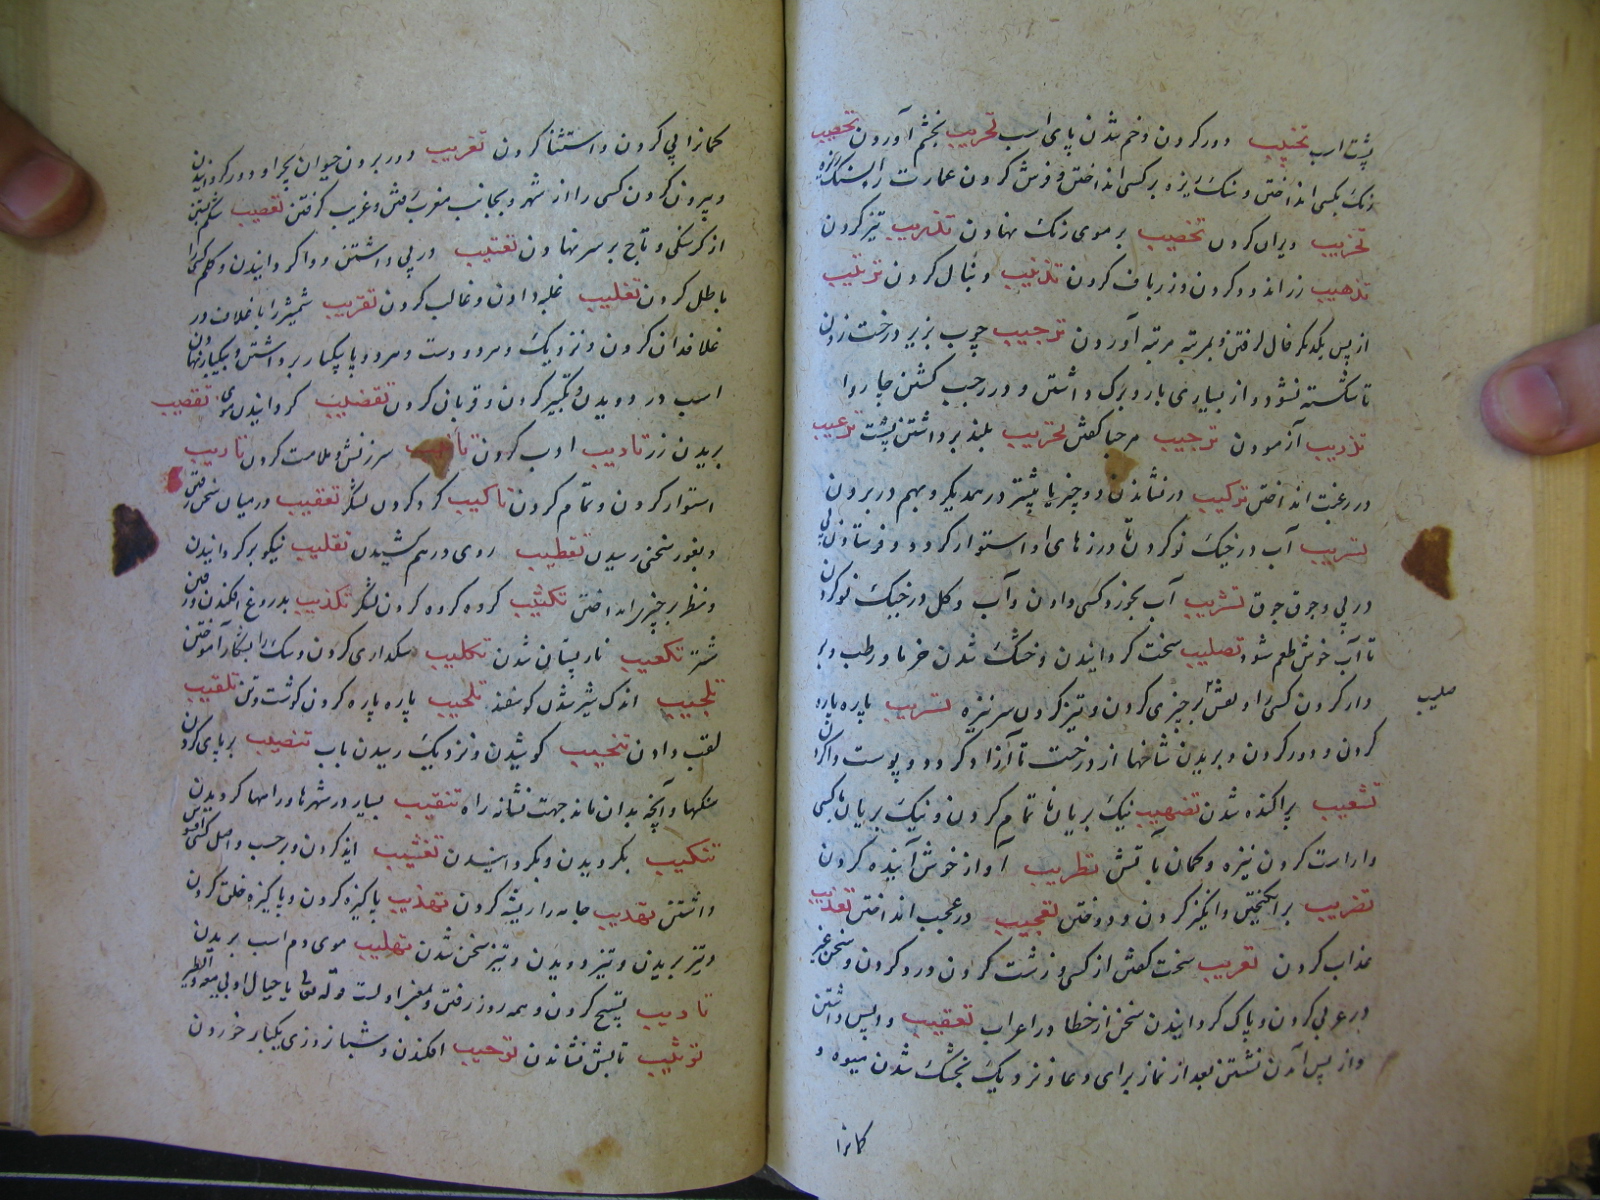 پشت اسب تخلیب دور کردن و خم شدن پای اسب تحریب بخشم آوردن تحصیب
رنگ بکسی انداختن و سنک ریزه بر کسی انداختن و فرش کردن عمارت را بسنک ریزه
تخریب ویران کردن تخضیب بر موی رنک نهادن تذریب تیز کردن
تذهیب زر اندود کردن و زرباف کردن تذنیب دنبال کردن ترتیب
از پس یکدیکر فال کرفتن و بمرتبه مرتبه آوردن ترجیب چوب بزیر درخت زدن
تا شکسته نشود از بسیاری بار و بزرک داشتن و در رجب کشتن چاروا
تدریب آزمودن ترحیب مرحبا کفتن بلند برداشتن پشت ترغیب
در رغبت انداختن ترکیب در نشاندن دو چیز یا بیشتر در همدیکر و بهم در بردن
تسریب آب در خیک نو کردن تا درزهای او استوار کردد و فرستادن پی
در پی و جوق جوق تشریب آب بخورد کسی دادن و آب و کل در خیک نو کردن
تا آب خوش طعم شود تصلیب سخت کردانیدن و خشک شدن خرما و رطب و بر
دار کردن کسی را و نقش بر چیزی کردن و تیز کردن سر نیزه تشریب پاره پاره
صلیب
کردن و دور کردن و بریدن شاخها از درخت تا آزاد کردد و پوست واکردن
تشعیب پراکنده شدن تضهیب نیک بریان ناتمام کردن و نیک بریان ناکسی
و راست کردن نیزه و کمان بآتش تطریب آواز خوش آینده کردن
تضریب برانکیختن و آمیز کردن و دوختن تعجیب در عجب انداختن تعذیب
عذاب کردن تعریب سخت کفتن از کسی و زشت کردن و رد کردن و سخن غیر
عربی کردن و پاک کردانیدن سخن از خطا در اعراب تعقیب واپس داشتن
و از پس آمدن نشستن بعد از نماز برای دعا و نزدیک بخشک شدن میوه و
کمانرا
کمانرا پی کردن و استثنا کردن تغریب دور بردن حیوان بچرا و دور کردانیدن
و بیرون کردن کسی را از شهر و بجانب مغرب رفتن و غریب کرفتن تعصیب شکم بستن
از کرسنکی و تاج بر سر نهادن تعتیب در پی داشتن و واکردانیدن و کسی را
باطل کردن تغلیب غلبه دادن و غالب کردن تقریب شمشیر را با غلاف در
غلافدان کردن و نزدیک و هر دو دست و هر دو پا بیکبار برداشتن و بیکبار نهادن
اسب در دویدن و تکبیر کردن و قربان کردن تقضیب کردانیدن موی تقصیب
بریدن رز تادیب ادب کردن تانیب سرزنش و ملامت کردن تاریب
استوار کردن و تمام کردن تاکیب کرد کردن لشکر تعقیب در میان سخن رفتن
و بغور سخنی رسیدن تقطیب روی درهم کشیدن تقلیب نیکو بر کردانیدن
و نظر بر چیزی انداختن تکتیب کروه کروه کردن لشکر تکذیب بدروغ افکندن
شتر تکعیب نار پستان شدن تکلیب سکداری کردن و سک را شکار آموختن
تلجیب اندک شیر شدن کوسفند تلحیب پاره پاره کردن کوشت و تن تلقیب
لقب دادن تنحیب کوشیدن و نزدیک رسیدن باب تنصیب بر پای کردن
سنکها و آنچه بدان ماند جهت نشانه راه تنقیب بسیار در شهرها و راهها کردیدن
تنکیب بکردیدن و بکردانیدن
داشتن تهدیب جامه را ریشه کردن تهذیب پاکیزه کردن و پاکیزه خلق کردن
و تیز بریدن و تیز دویدن و تیز سخن شدن تهلیب موی دم اسب بریدن
تاویب تسبیح کردن و همه روز رفتن و بمعنی اولست قوله تعالی یا جبال اوبی معه والطیر
توثیب تابش نشاندن توجیب افکندن و شبانروزی یکبار خوردن